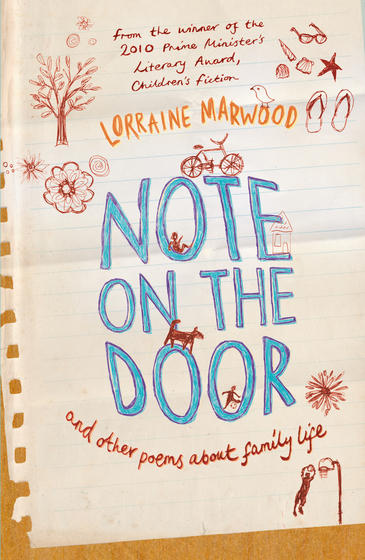 from the winner of the
2010 Prime Minister's
Literary Award,
Children's fiction
LORRAINE MARWOOD
NOTE
ON THE
DOOR
and other poems about family life